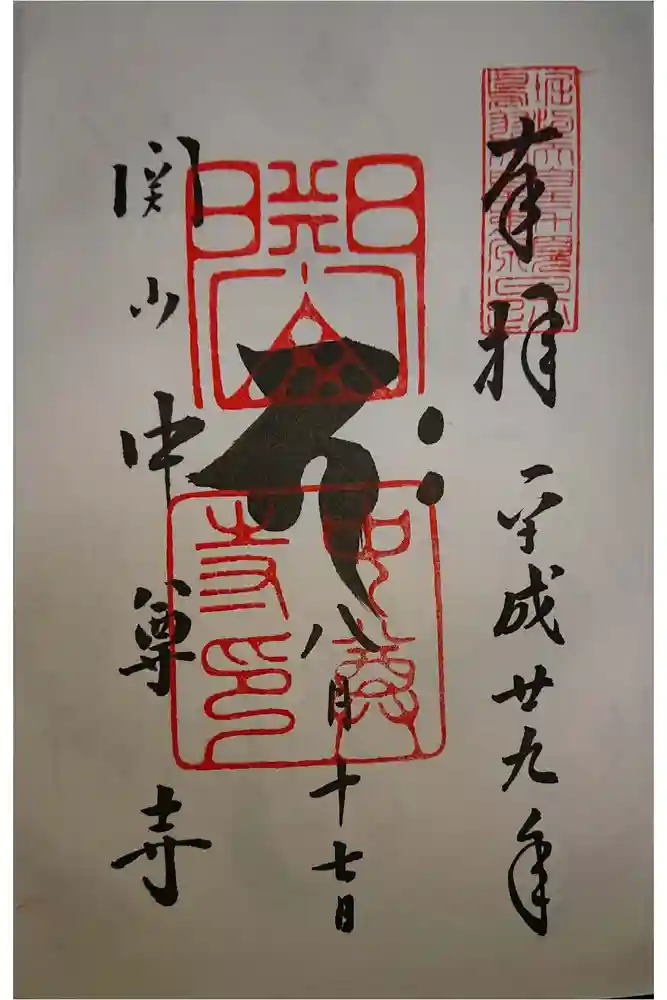 奉拝 平成廿九年
八月十七日
関山中尊寺
関山
中尊寺印